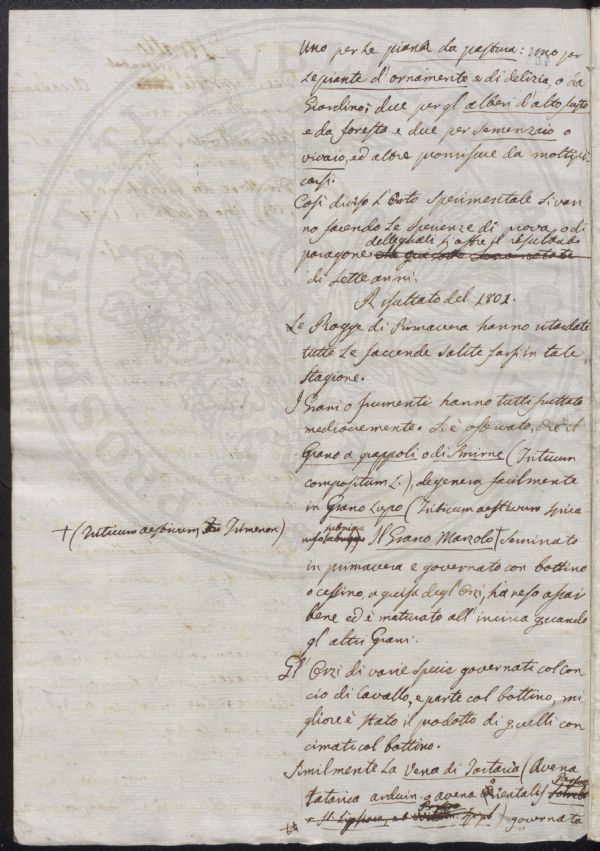 Uno per le piante da pastura: uno per
le piante d'ornamento e di delizia, o da
Giardino; due per gl'alberi d'alto fusto
e da foresta e due per semenzaio o
vivaio, ed altre promiscue da moltipli
carsi.
Così diviso l'Orto sperimentale si van
no facendo le sperienze di prova, o di
delle quali si offre il resultato
paragone
di sette anni.
Resultato del 1801.
Le Piogge di Primavera hanno ritardate
tutte le faccende solite farsi in tale
stagione.
I Grani o frumenti hanno tutti fruttato
mediocremente. Si è osservato, che il
Grano a grappoli o di Smirne (Triticum
compositum L.), degenera facilmente
in Grano Lupo (Triticum aestivum spica
rufa
Il Grano Marzolo † seminato
+ (Triticum aestivum, Trimenon)
in primavera e governato con bottino
o cessino, a guisa degl'Orzi, ha reso assai
bene ed è maturato all'incirca quando
gl'altri Grani.
Gl'Orzi di varie specie governati col con
cio di Cavallo, e parte col bottino, mi
gliore è stato il prodotto di quelli con
cimati col bottino.
Similmente la Vena di Tartaria (Avena
tatarica arduin. o avena orientalis
governata